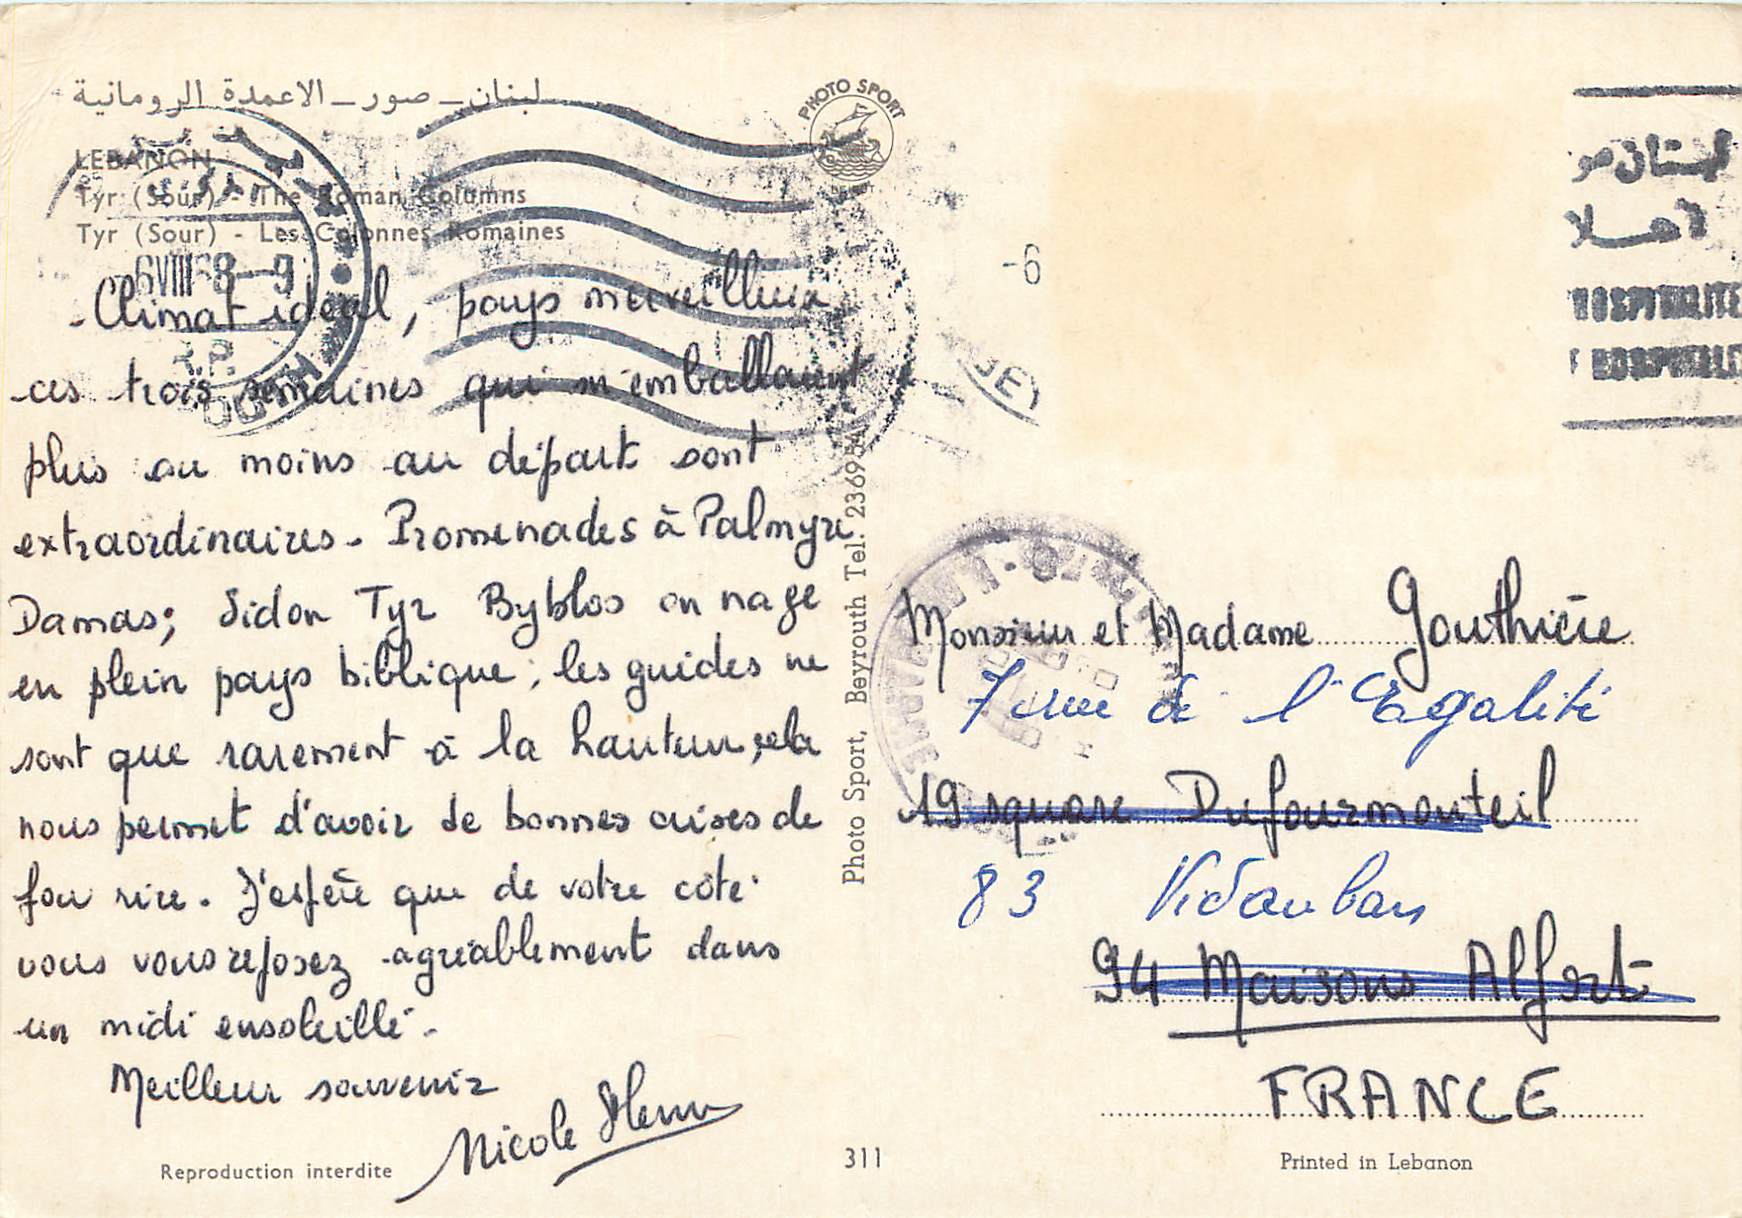 لبنان - صور - الاعمدة الرومانية
LEBANON
Tyr (Sour) - The Roman Columns
Tyr (Sour) - Les Colonnes Romaines
PHOTO SPORT
6 VIII 68 - 9
- 6
BEY
لبنان
اهلا
HOSPITALITE
HOSPITALIT
Climat idéal, pays merveilleux
ces trois semaines qui m'emballaient
plus ou moins au départ sont
extraordinaires - Promenades à Palmyre
Damas; Sidon Tyr Byblos on nage
en plein pays biblique; les guides ne
sont que rarement à la hauteur, cela
nous permet d'avoir de bonnes crises de
fou rire. J'espère que de votre côté
vous vous reposez agréablement dans
un midi ensoleillé -
Meilleur souvenir
Nicole
Reproduction interdite
Photo Sport, Beyrouth Tel. 236954
311
Monsieur et Madame Gouthière
7 rue de l'Egalité
19 square Dufourmonteil
83 Vidauban
94 Maisons Alfort
FRANCE
Printed in Lebanon